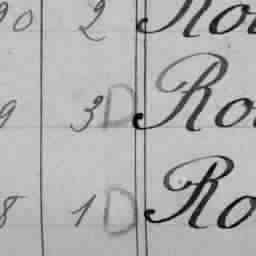 90 2 Ro
9 3 D Ro
8 1 D Ro